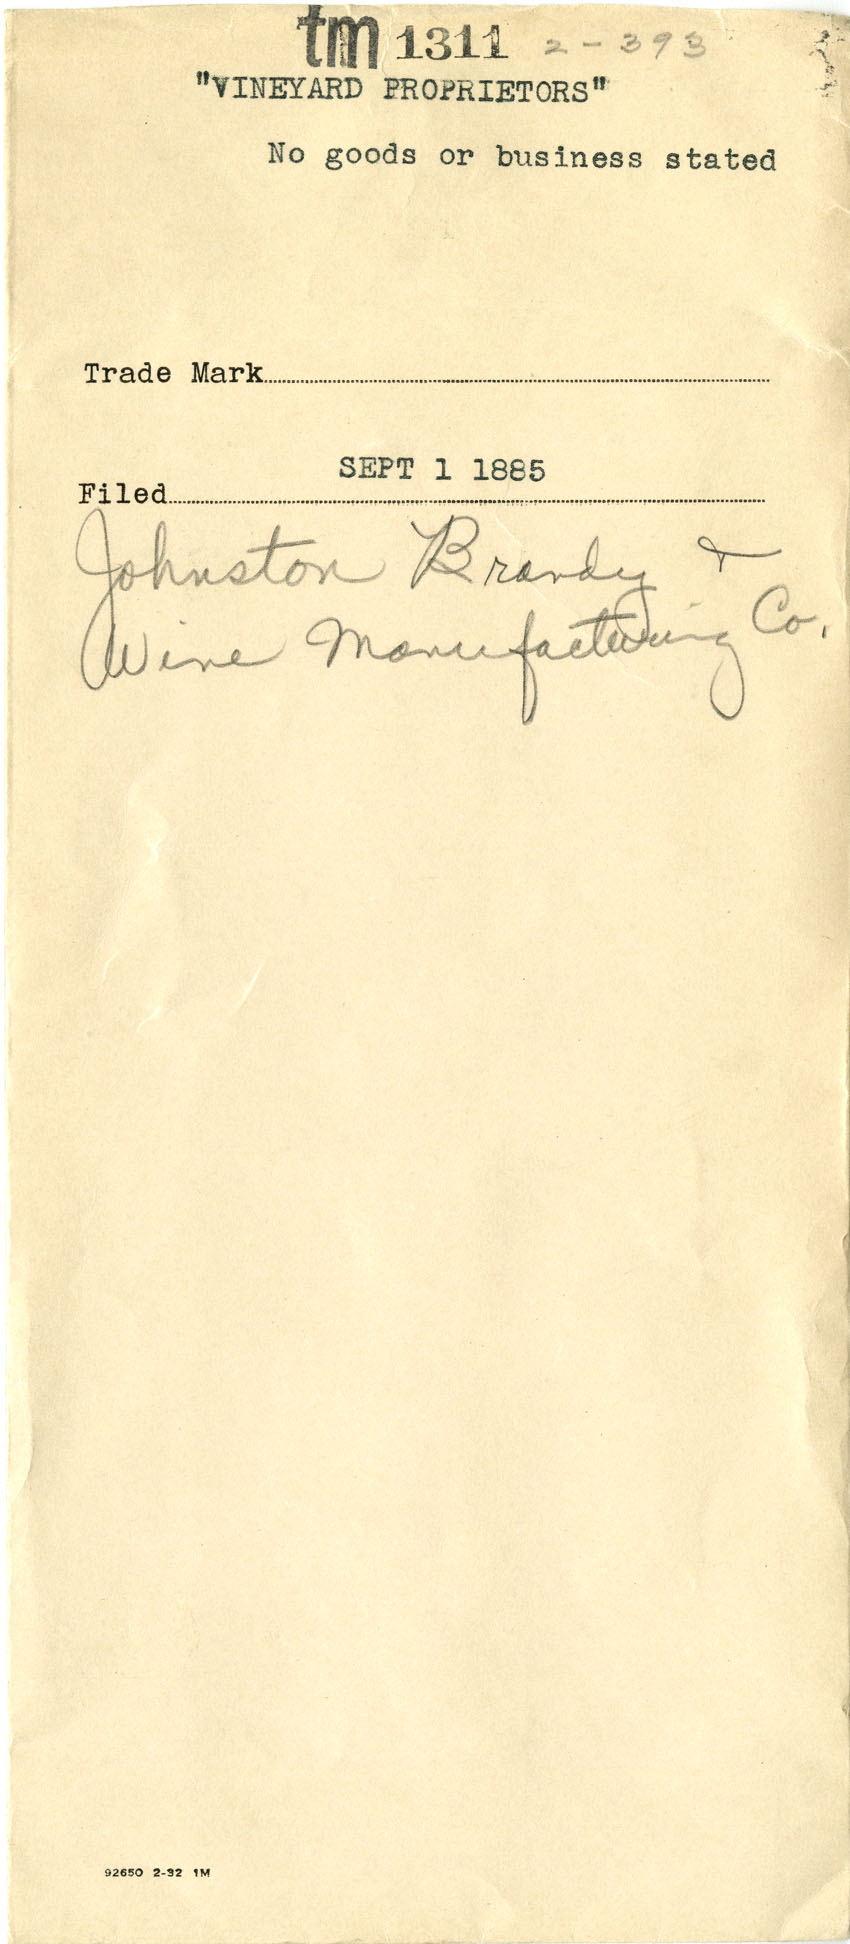 tm 1311 2-393
"VINEYARD PROPRIETORS"
No goods or business stated
Trade Mark
SEPT 1 1885
Filed
Johnston Brandy &
Wine Manufacturing Co.
92650 2-32 1M